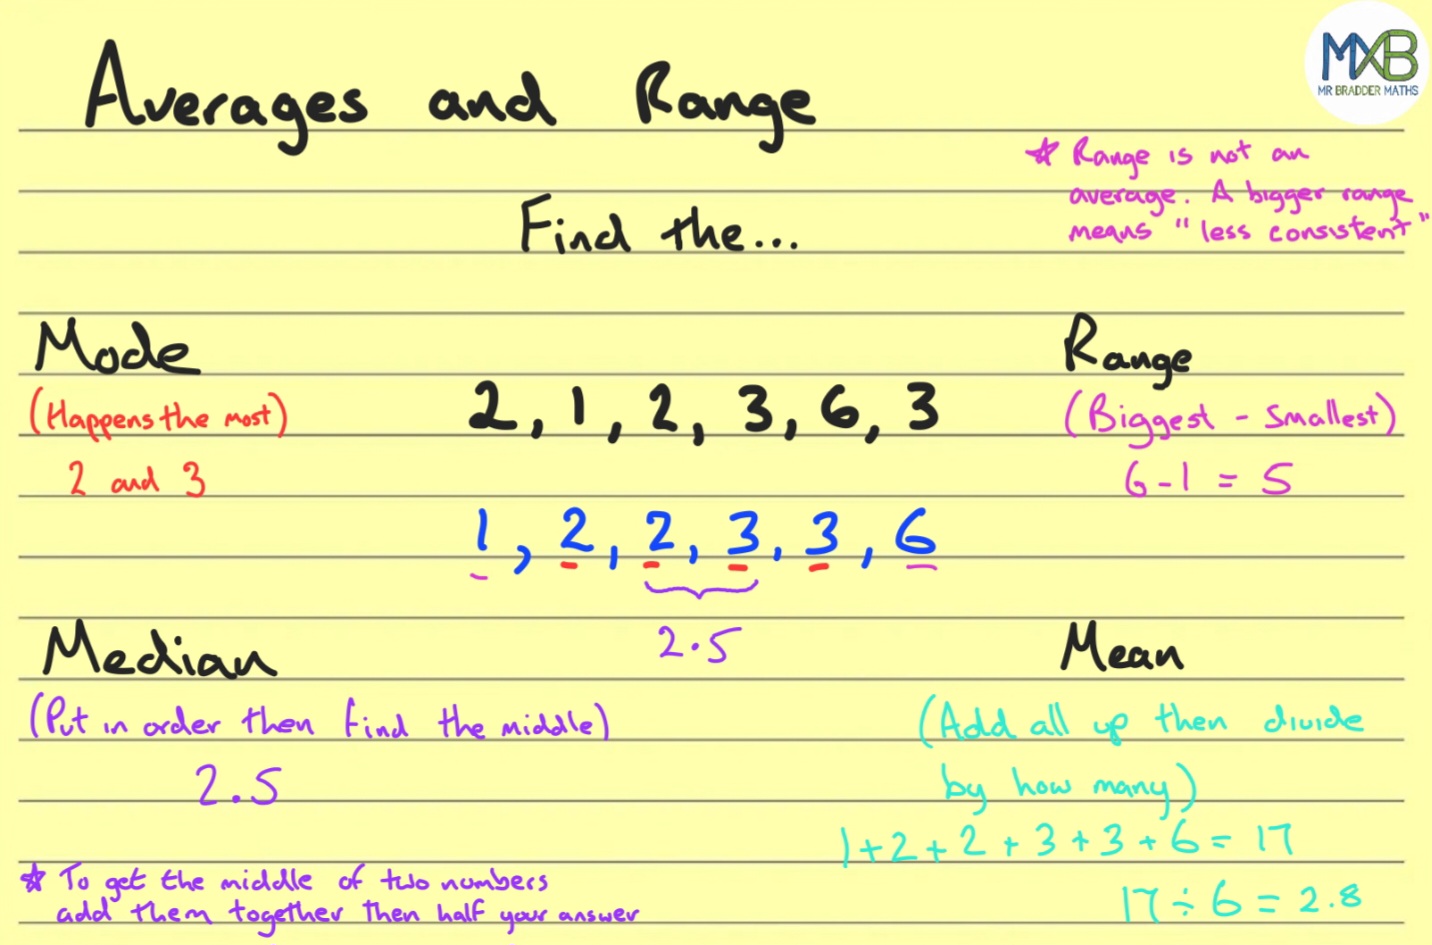 Averages and Range
MXB
MR BRADDER MATHS
* Range is not an
average. A bigger range
means "less consistent"
Find the...
Mode
(Happens the most)
2 and 3
2, 1, 2, 3, 6, 3
1, 2, 2, 3, 3, 6
2.5
Range
(Biggest - Smallest)
6-1 = 5
Median
(Put in order then find the middle)
2.5
* To get the middle of two numbers
add them together then half your answer
Mean
(Add all up then divide
by how many)
1+2+2+3+3+6= 17
17÷6=2.8